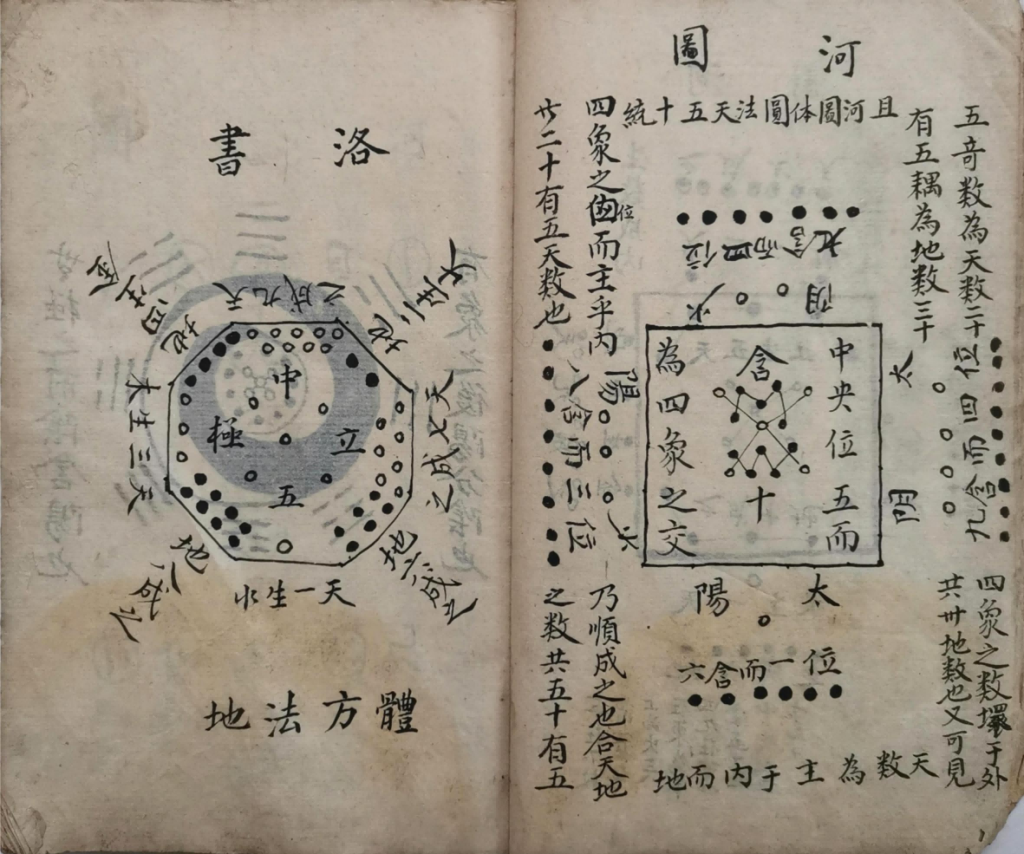 河圖
五竒数為天数二十
有五耦為地数三十
且河圖体圓法天五十統
四象之位而主乎内
廿二十有五天数也
位四而含九
少阴
太阴
位四而含九
中央位五而
含十
為四象之交
少陽
位三而含八
太陽
位一而含六
四象之数環于外
共卅地数也又可見
天数為主于内而地
乃順成之也合天地
之数共五十有五
洛書
天九成之
地二生火
天七成之
地六成之
天一生水
地八成之
天三生木
地四生金
中立五極
體方法地